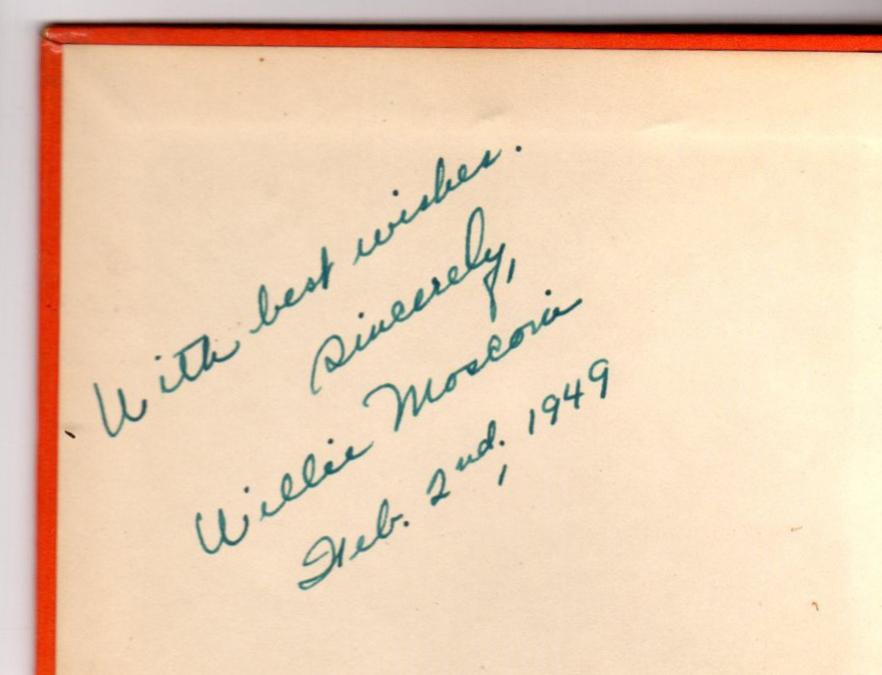 With best wishes.
Sincerely,
Willie Mosconi
Feb. 2nd, 1949